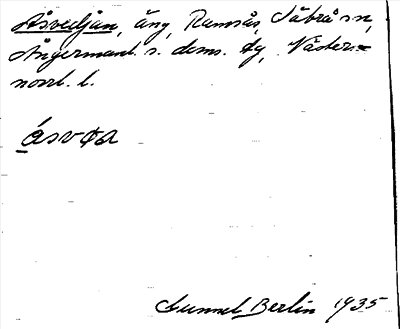 Åsvedjan, äng, Ramsås, Säbrå sn,
Ångermanl. s. doms. dg, Väster-
norrl. l.
åsvɷa
Gunnel Berlin 1935